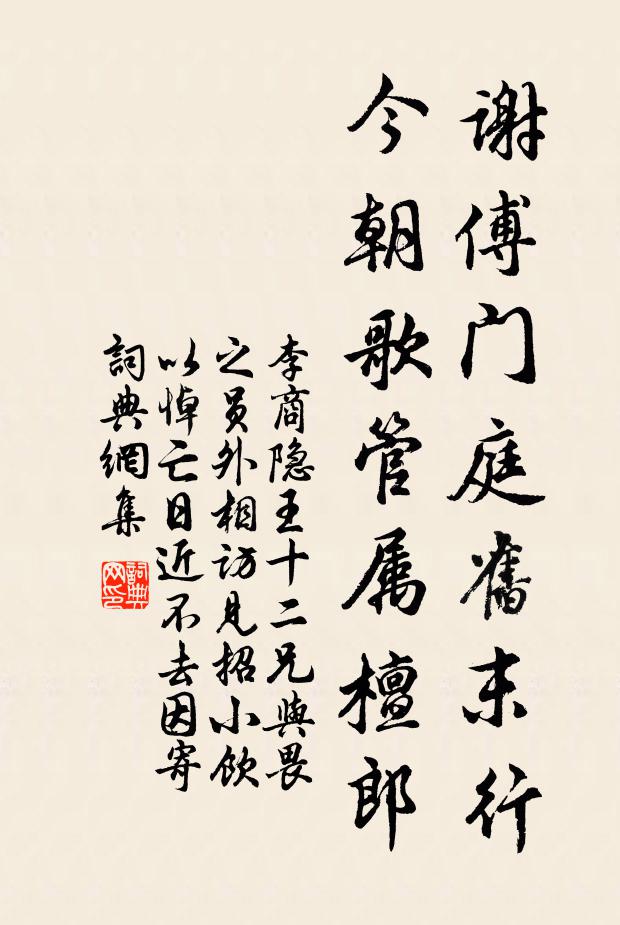 谢傅门庭舊末行
今朝歌管属檀郎
李商隐王十二兄與畏
之员外相访见招小饮
以悼亡日近不去因寄
詞典網集
詞典网印